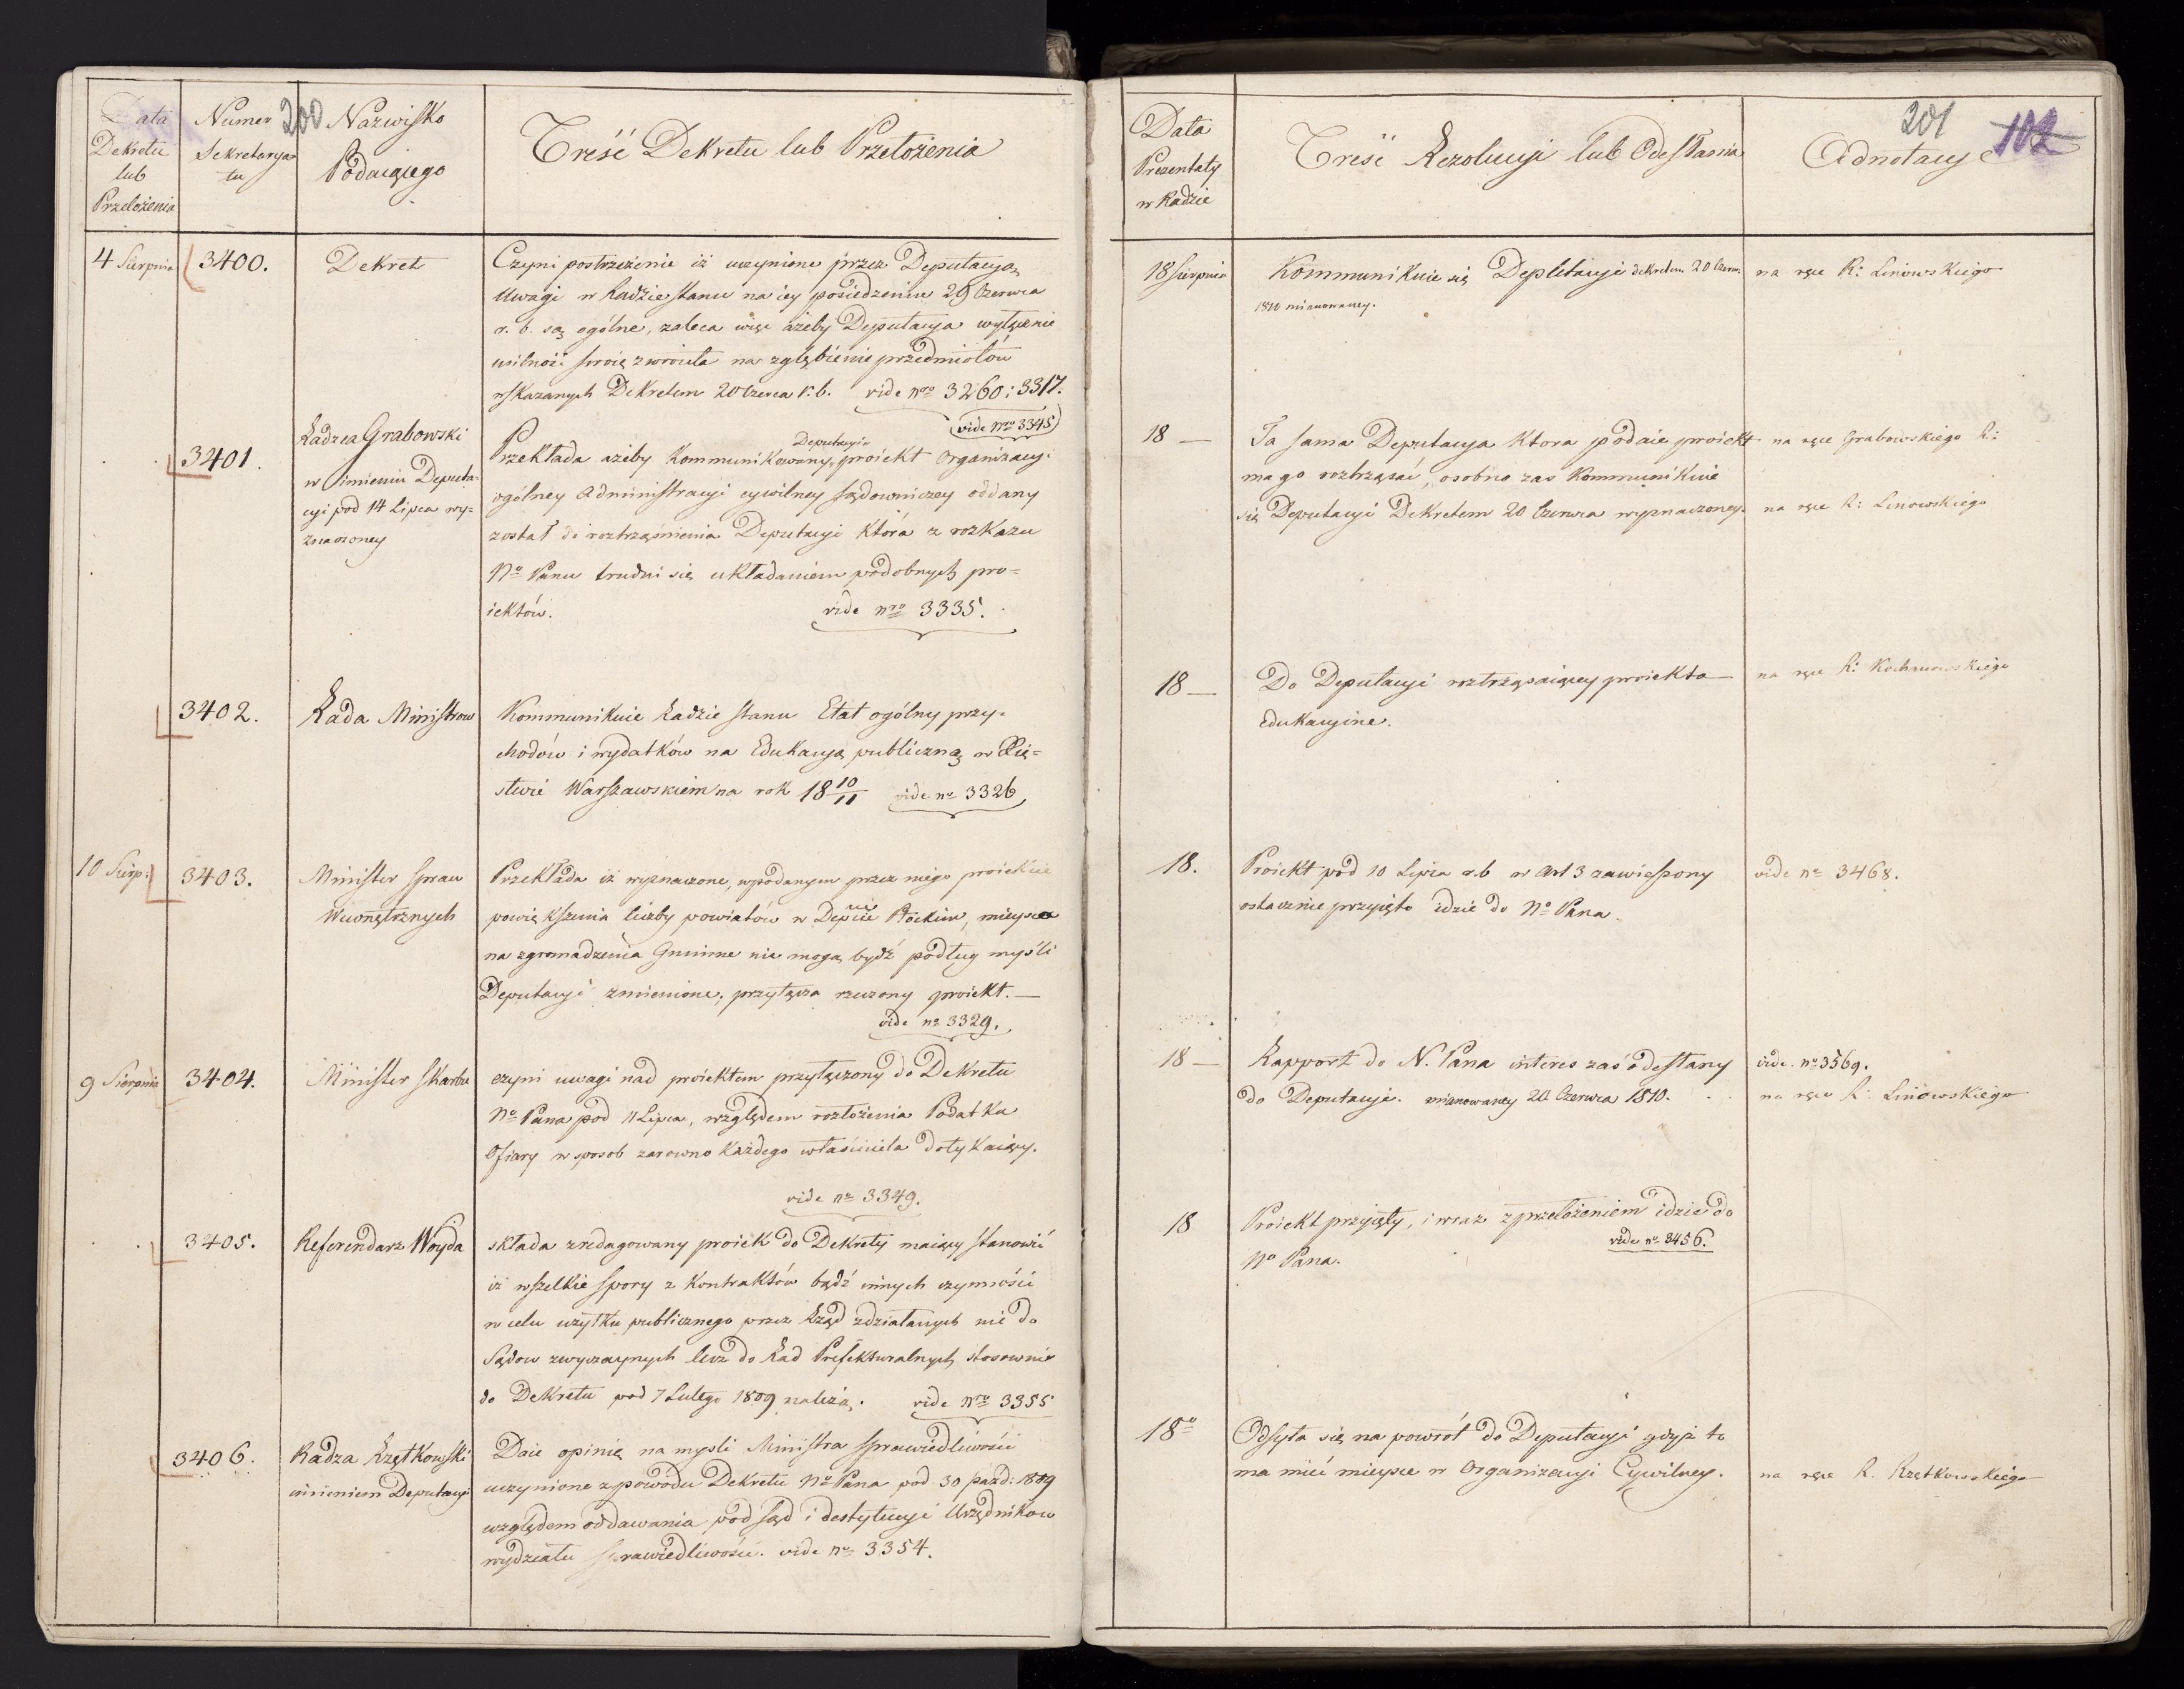 Data
Dekretu
lub
Przełożenia
Numer
Sekretarya-
tu
200
Nazwisko
Podaiącego
Treść Dekretu lub Przełożenia
4 Sierpnia
3400.
Dekret
Czyni postrzeżenie iż uczynione przez Deputacyą
Uwagi w Radzie stanu na iey posiedzeniu 29 Czerwca
r. b. są ogólne, zaleca więc ażeby Deputacya wyłącznie
usilność swoię zwróciła na zgłębienie przedmiotów
wskazanych Dekretem 20 Czerwca r. b. vide nro 3260 i 3317.
vide nro 3345
3401.
Radzca Grabowski
w imieniu Deputa-
cyi pod 14 Lipca wy-
znaczoney
Deputacyi
Przekłada ażeby kommunikowany proiekt Organizacyi
ogólney Administracyi cywilney sądowniczey oddany
został do roztrząśnienia Deputacyi która z rozkazu
No Panu trudni się układaniem podobnych pro-
iektów. vide nro 3335.
3402.
Rada Ministrow
Kommunikuie Radzie stanu Etat ogólny przy-
chodów i wydatków na Edukacyą publiczną w Xię-
stwie Warszawskiem na rok 18 10/11 vide no 3326
10 Sierp:
3403.
Minister spraw
Wewnętrznych
Przekłada iż wyznaczone, wpodanym przez niego proiekcie
powiększenia liczby powiatów w Depcie Płockim, mieysca
na zgromadzenia Gminne nie mogą bydź podług myśli
Deputacyi zmienione; przyłącza rzeczony proiekt. —
vide no 3329.
9 Sierpnia
3404.
Minister Skarbu
czyni uwagi nad proiektem przyłączony do Dekretu
No Pana pod 11 Lipca, względem rozłożenia Podatku
Ofiary w sposob zarowno każdego właściciela dotykaiący.
vide no 3349.
3405.
Referendarz Woyda
składa zredagowany proiek do Dekretu maiący stanowić
iż wszelkie spory z kontraktów bądź innych czynności
w celu użytku publicznego przez Rząd zdziałanych nie do
Sądow zwyczaynych lecz do Rad Prefekturalnych stosownie
do Dekretu pod 7 Lutego 1809 należą. vide nro 3355
3406.
Radza Rzętkowski
imieniem Deputacyi
Daie opinię na mysli Ministra sprawiedliwości
uczynione zpowodu Dekretu No Pana pod 30 pazd: 1809
względem oddawania pod sąd i destytucyi Urzędnikow
wydziału sprawiedliwości. vide no 3354.
Data
Prezentaty
w Radzie
Treść Rezolucyi lub Odesłania
Adnotacye
201
102
18 Sierpnia
Kommunikuie się Deputacyi dekretem 20 Czerw.
1810 mianowaney.
na ręce R: Linowskiego
18 —
Ta sama Deputacya ktora podaie proiekt
ma go roztrząsać, osobno zas kommunikuie
się Deputacyi Dekretem 20 Czerwca wyznaczoney.
na ręce Grabowskiego R:
na ręce R: Linowskiego
18 —
Do Deputacyi roztrząsaiącey proiekta
edukacyine.
na ręce R: Kochanowskiego
18.
Proiekt pod 10 Lipca r. b w Art 3 zawieszony
ostatecznie przyięto idzie do No Pana.
vide no 3468.
18 —
Rapport do N. Pana interes zaś odesłany
do Deputacyi. mianowaney 20 Czerwca 1810.
vide. no 3569.
na ręce R. Linowskiego
18
Proiekt przyięty, i wraz z przełożeniem idzie do
No Pana.
vide no 3456.
18o
Odsyła się na powrót do Deputacyi gdyż to
ma mieć mieysce w Organizacyi Cywilney.
na ręce R. Rzętkowskiego